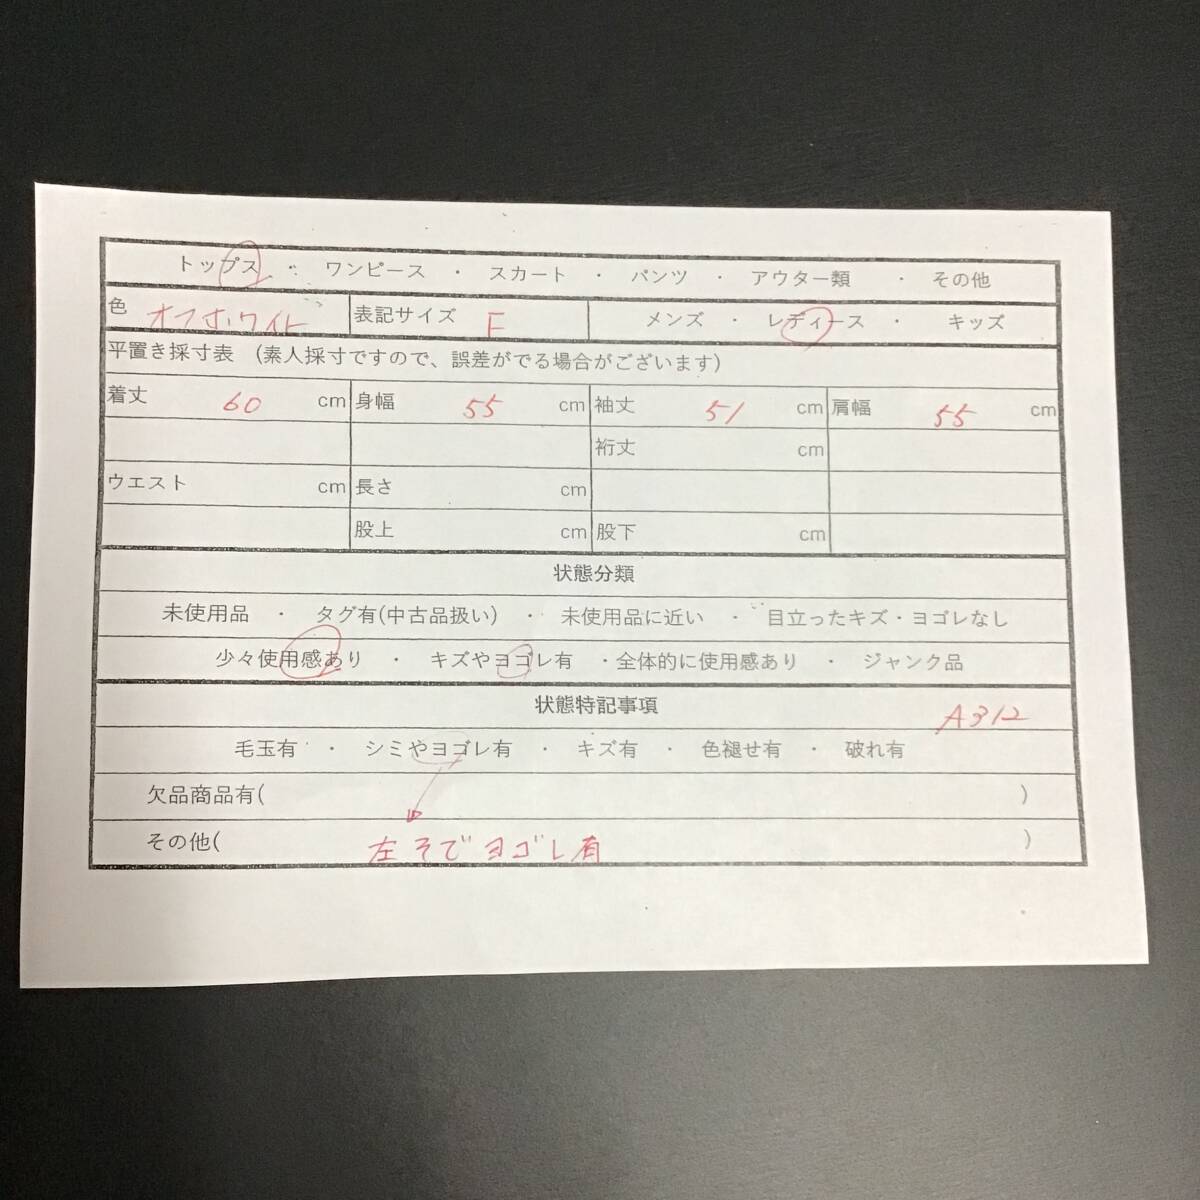 トップス ・ ワンピース ・ スカート ・ パンツ ・ アウター類 ・ その他
色 オフホワイト 表記サイズ F メンズ ・ レディース ・ キッズ
平置き採寸表 (素人採寸ですので、誤差がでる場合がございます)
着丈 60 cm 身幅 55 cm 袖丈 51 cm 肩幅 55 cm
裄丈 cm
ウエスト cm 長さ cm
股上 cm 股下 cm
状態分類
未使用品 ・ タグ有(中古品扱い) ・ 未使用品に近い ・ 目立ったキズ・ヨゴレなし
少々使用感あり ・ キズやヨゴレ有 ・全体的に使用感あり ・ ジャンク品
状態特記事項 A312
毛玉有 ・ シミやヨゴレ有 ・ キズ有 ・ 色褪せ有 ・ 破れ有
欠品商品有( )
その他( 左そでヨゴレ有 )